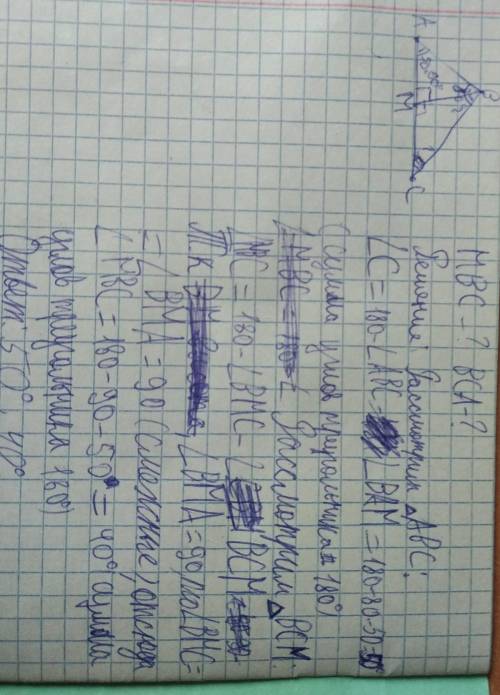 A
B
M
C
MBC - ? BCA - ?
Решение: Рассмотрим △ABC:
∠C = 180 - ∠ABC - ∠BAM = 180-80-50=50°
(сумма углов треугольника = 180°)
Рассмотрим △BCM.
MBC = 180 - ∠BMC - ∠BCM
Т.к ∠BMA = 90, то ∠BMC =
= ∠BMA = 90 (смежные), отсюда
∠MBC = 180-90-50° = 40° сумма
углов треугольника 180°)
Ответ: 50°, 40°